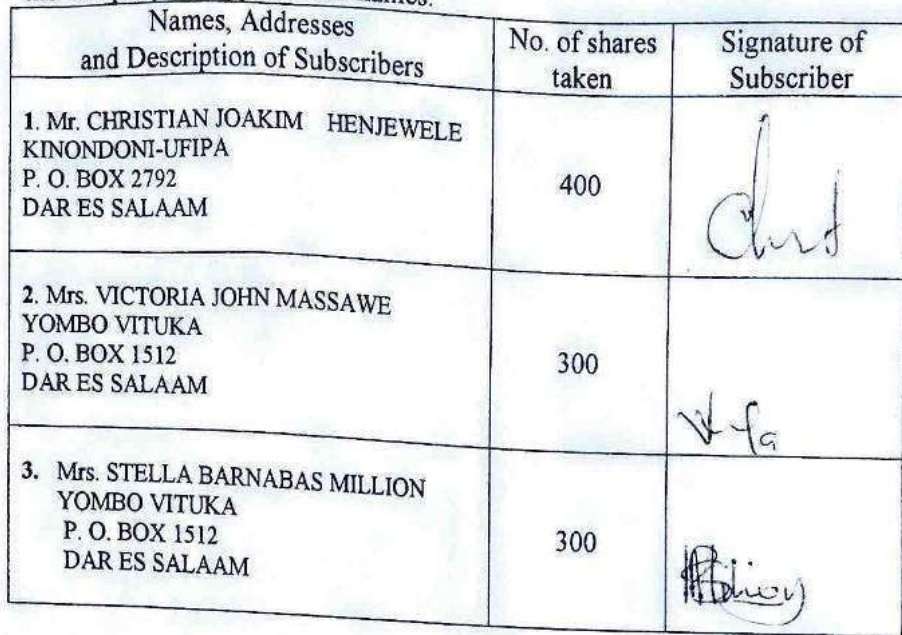 names.
Names, Addresses
and Description of Subscribers
No. of shares
taken
Signature of
Subscriber
1. Mr. CHRISTIAN JOAKIM HENJEWELE
KINONDONI-UFIPA
P. O. BOX 2792
DAR ES SALAAM
400
2. Mrs. VICTORIA JOHN MASSAWE
YOMBO VITUKA
P. O. BOX 1512
DAR ES SALAAM
300
3. Mrs. STELLA BARNABAS MILLION
YOMBO VITUKA
P. O. BOX 1512
DAR ES SALAAM
300